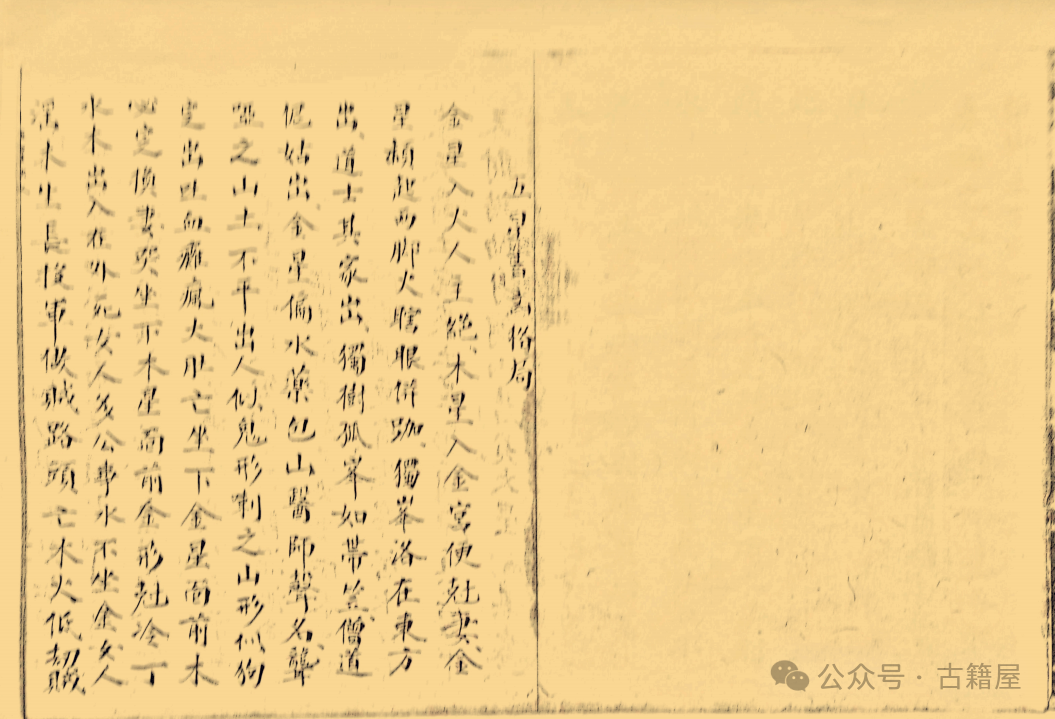 五星書玄格局
金星入火人主絕木星入金宮便尅妻金
星頭起兩脚火瞎眼併跏獨峯洛在東方
出道士其家出獨樹孤峯如帶笠僧道
尼姑出金星偏水藥包山醫師聲名聾
啞之山土不平出人似鬼形喇之山形似狗
定出吐血癱瘋火甲亡坐下金星面前木
必定換妻哭坐下木星面前金形尅冷丁
水木出入在外死女人多公事水不坐金女人
木生長後軍做賊路頭亡木火低刧賊
公众号·古籍屋